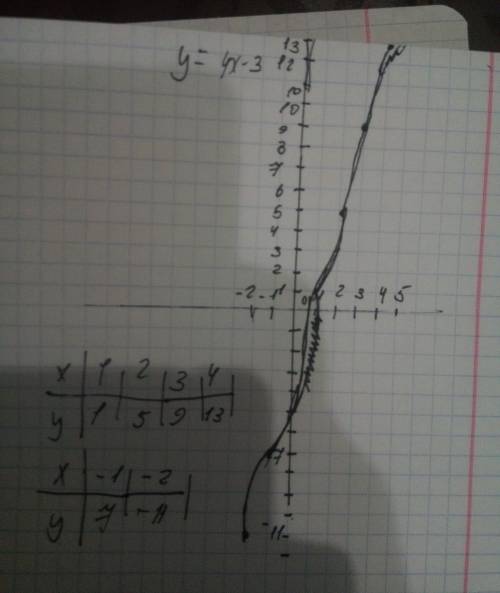 y = 4x-3
13
12
10
10
9
8
7
6
5
4
3
2
-2 -1 1 0 1 2 3 4 5
x 1 2 3 4
y 1 5 9 13
-7
x -1 -2
y 7 -11
-11